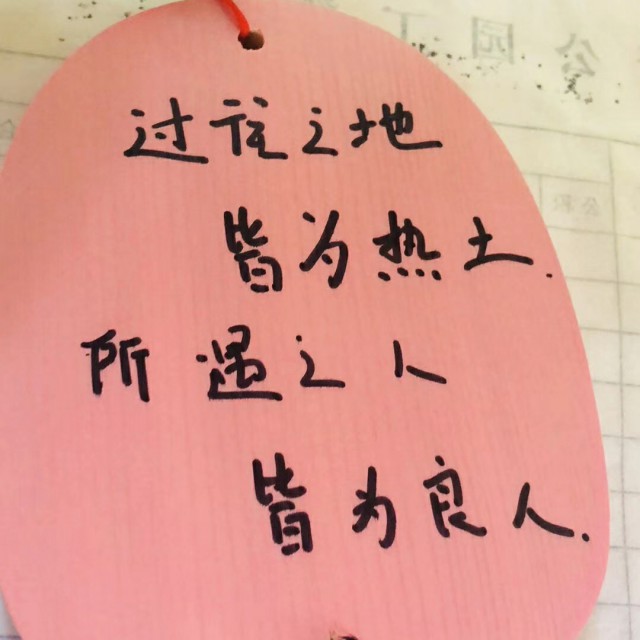 过往之地
皆为热土.
所遇之人
皆为良人.